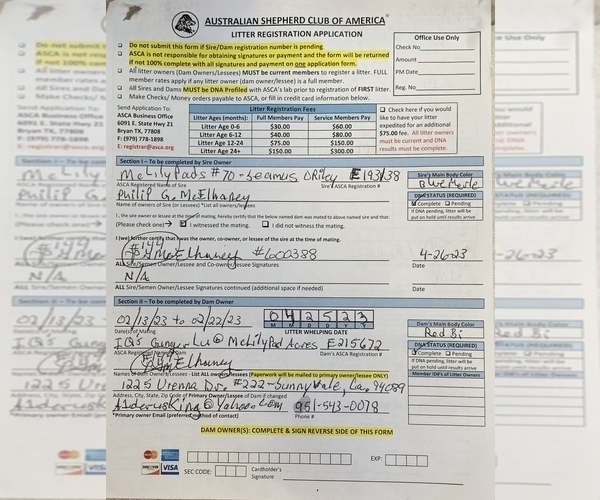 AUSTRALIAN SHEPHERD CLUB OF AMERICA
LITTER REGISTRATION APPLICATION
Do not submit this form if Sire/Dam registration number is pending.
ASCA is not responsible for obtaining signatures or payment and the form will be returned
if not 100% complete with all signatures and payment on one application form.
All litter owners (Dam Owners/Lessees) MUST be current members to register a litter. FULL
member rates apply if any litter owner (dam owner/lessee) is a full member.
All Sires and Dams MUST be DNA Profiled with ASCA's lab prior to registration of FIRST litter.
Make Checks/ Money orders payable to ASCA, or fill in credit card information below.
Office Use Only
Check No
Amount
PM Date
Reg. No
Send Application To:
ASCA Business Office
6091 E. State Hwy 21
Bryan TX, 77808
F: (979) 778-1898
E: registrar@asca.org
Litter Registration Fees
Litter Ages (months): Full Members Pay Service Members Pay
Litter Age 0-6 $30.00 $60.00
Litter Age 6-12 $40.00 $80.00
Litter Age 12-24 $75.00 $150.00
Litter Age 24+ $150.00 $300.00
Check here if you would
to have your litter
expedited for an additional
$75.00 fee. All litter owners
must be current and DNA
results must be complete.
Section I – To be completed by Sire Owner
McLilyPads #70 - Seamus ORiley E193138
ASCA Registered Name of Sire Sire's ASCA Registration #
Philip G. McElhaney
Name of Owners of Sire (or Lessees) *List all owners/lessees
Sire's Main Body Color
Blue Merle
DNA STATUS (REQUIRED)
Complete Pending
If DNA pending, litter will be
put on hold until results arrive
I, the sire owner or lessee at the time of mating, hereby certify that the below named dam was mated to above named sire and that:
(Please check one) I witnessed the mating. I did not witness the mating.
I (we) further certify that I was the owner, co-owner, or lessee of the sire at the time of mating.
4-26-23
ALL Sire/Semen Owner/Lessee and Co-owner/Lessee Signatures Date
N/A
ALL Sire/Semen Owner/Lessee Signatures continued (additional space if needed) Date
Section II – To be completed by Dam Owner
02/13/23 to 02/22/23
Date(s) of Mating
042523
M M D D Y Y
LITTER WHELPING DATE
McLilyPad Acres E215672
ASCA Registered Name of Dam Dam's ASCA Registration #
Names of Dam Owners - List ALL owners/lessees (Paperwork will be mailed to primary owner/lessee ONLY)
Dam's Main Body Color
Red Bi
DNA STATUS (REQUIRED)
Complete Pending
If DNA pending, litter will be
put on hold until results arrive
Member ID#'s of Litter Owners
1225 Vienna Dr. #222 - Sunnyvale, Ca. 94089
Address, City, State, Zip Code of Primary Owner/Lessee of Dam if changed
@Yahoo.com 951-543-0078
*Primary owner Email (preferred method of contact) Phone #
DAM OWNER(S): COMPLETE & SIGN REVERSE SIDE OF THIS FORM
VISA
EXP:
SEC CODE:
Cardholder's
Signature